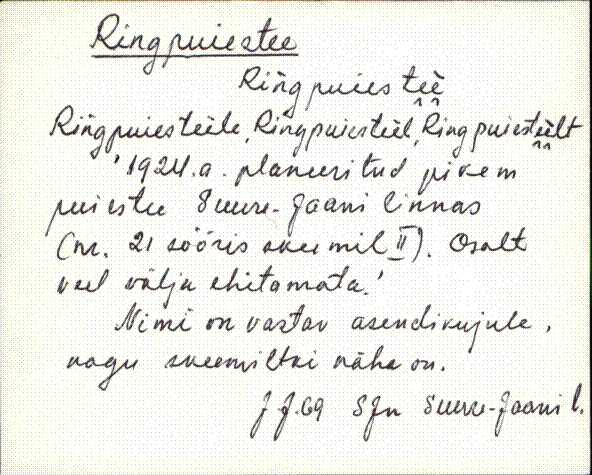 Ringpuiestee
Ring puiestee
Ringpuiesteele, Ringpuiesteel, Ringpuiesteelt
'1924.a. planeeritud pikem
puiestee Suure-Jaani linnas
(nr. 21 sõõris skeemil II). Osalt
veel välja ehitamata.'
Nimi on vastav asendikujule,
nagu skeemiltki näha on.
J J. 69 SJn Suure-Jaani l.